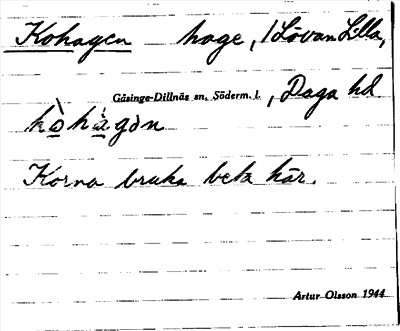 Kohagen hage, 1 Lövan Lilla,
Gåsinge-Dillnäs sn, Söderm. l., Daga hd
kòhàgən
Korna bruka beta här.
Artur Olsson 1944